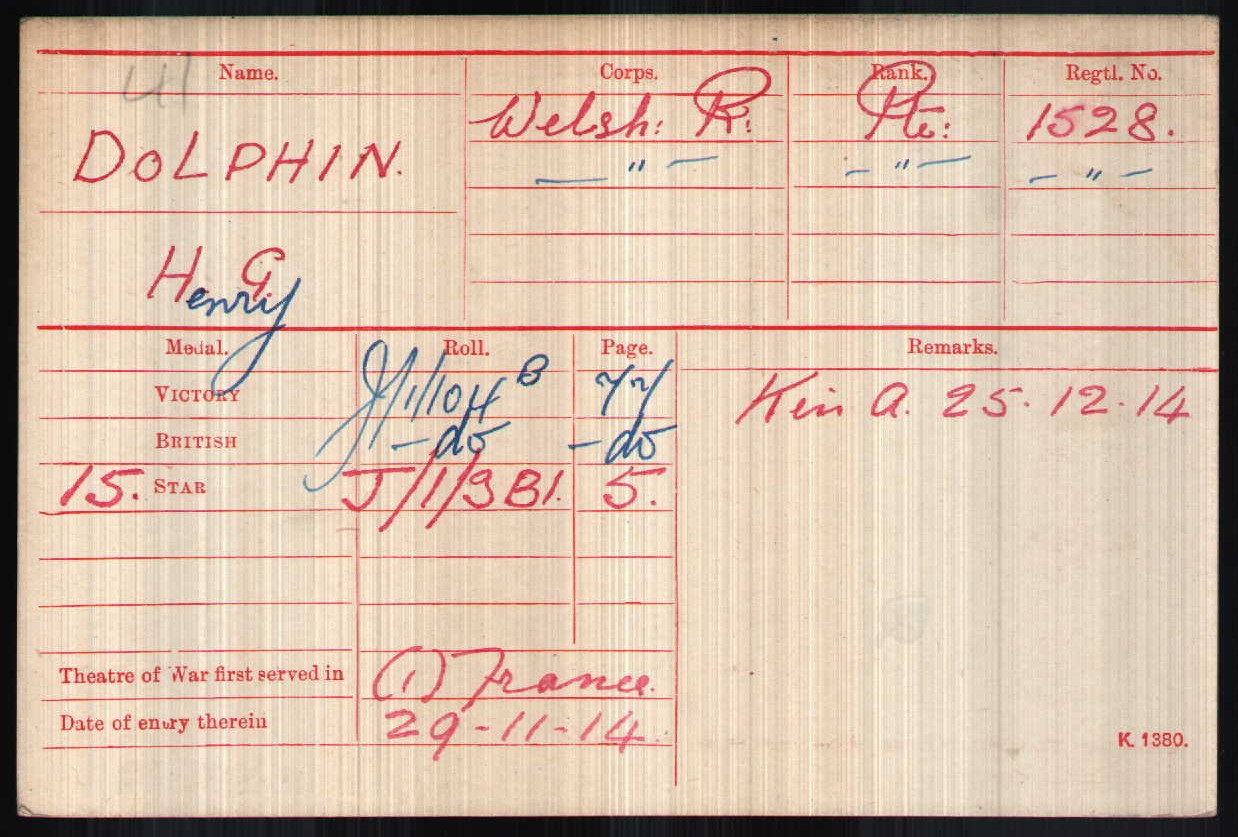 Name. Corps. Rank. Regtl. No.
DOLPHIN. Welsh: R: Pte: 1528.
— " — — " — — " —
Henry G.
Medal. Roll. Page. Remarks.
VICTORY J/1/104 B 77 Kin A. 25.12.14
BRITISH – do – do
15. STAR J/1/3 B1. 5.
Theatre of War first served in (1) France.
Date of entry therein 29-11-14.
K. 1380.